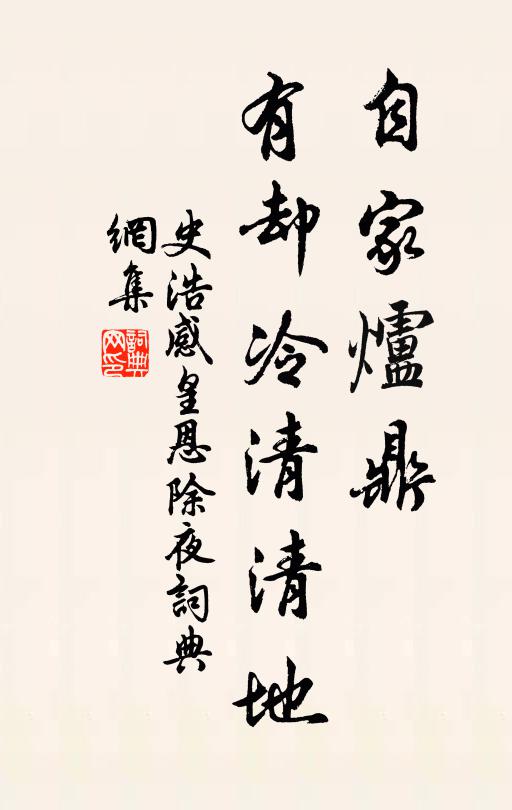 自家爐鼎
有却冷清清地
史浩感皇恩除夜詞典
網集
詞典網印